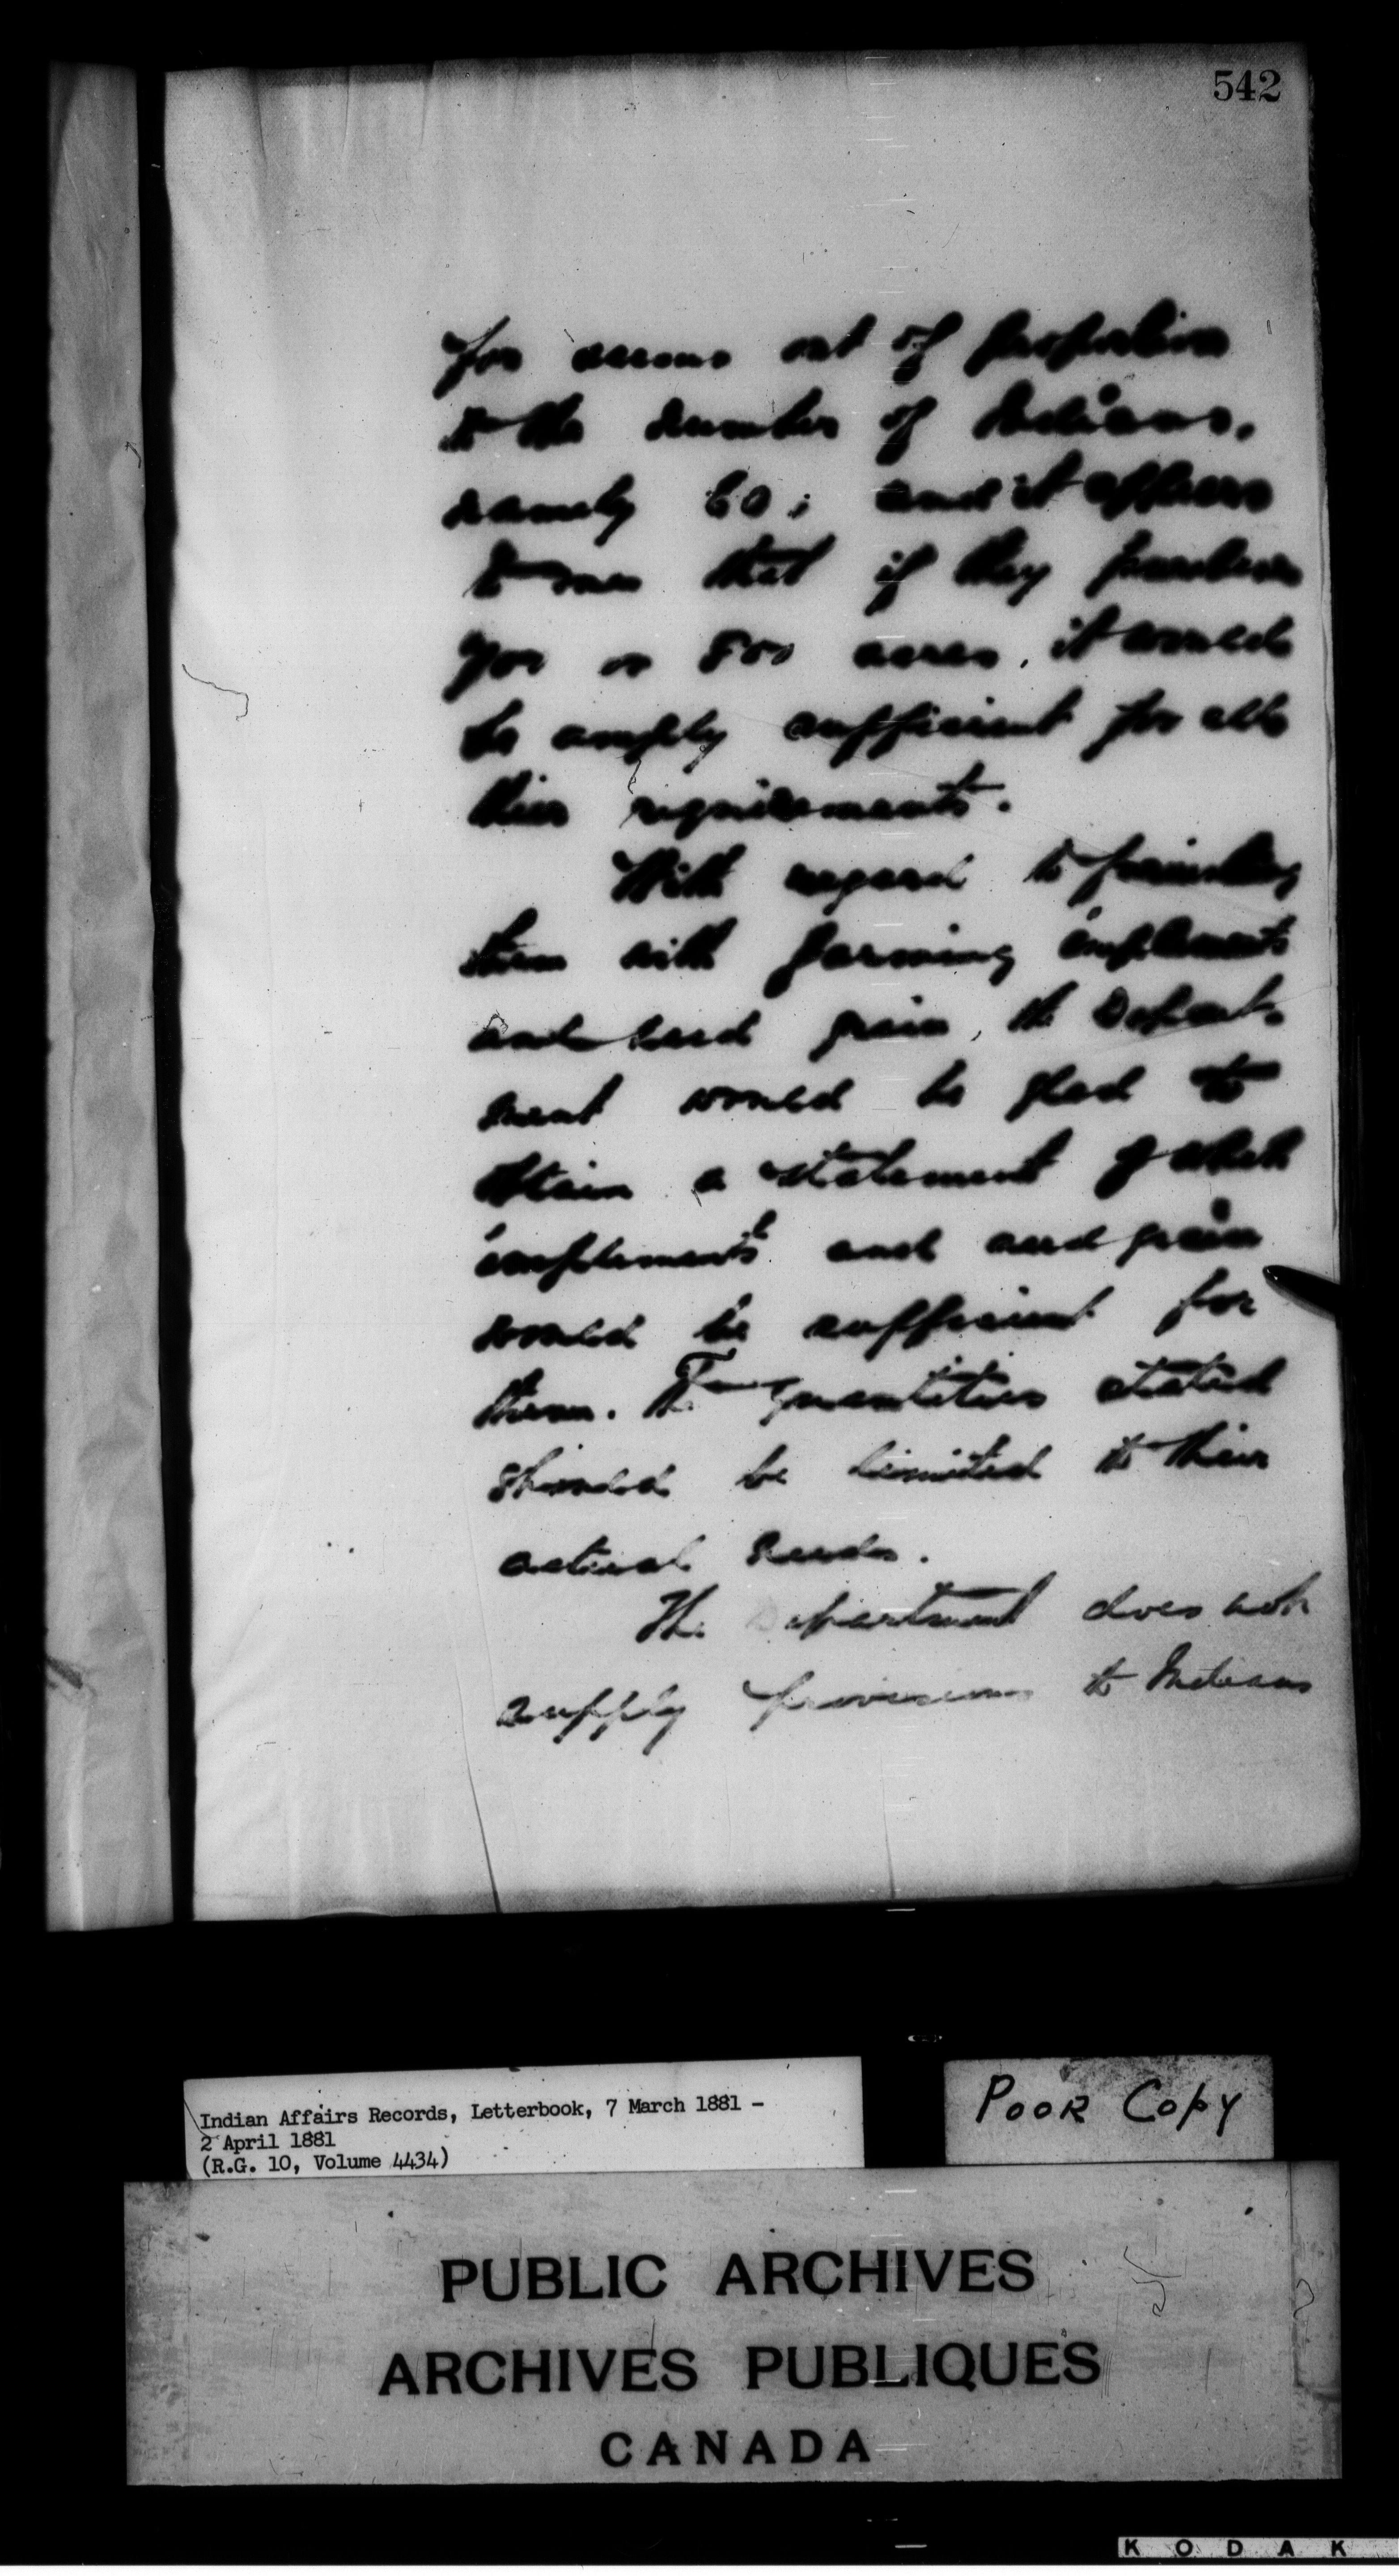 542
out of proportion
to the number of Indians,
namely 60; and it appears
to me that if they purchase
or 500 acres, it would
be amply sufficient for all
their requirements.
With regard to providing
them with farming implements
and seed grain, the Depart-
ment would be glad to
obtain a statement of what
implements and seed grain
would be sufficient for
them. The quantities stated
should be limited to their
actual needs.
The Department does not
supply provisions to Indians
Indian Affairs Records, Letterbook, 7 March 1881 -
2 April 1881
(R.G. 10, Volume 4434)
POOR COPY
PUBLIC ARCHIVES
ARCHIVES PUBLIQUES
CANADA
KODAK